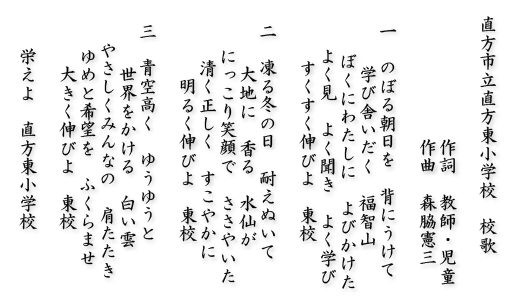 直方市立直方東小学校　校歌
作詞　教師・児童
作曲　森脇憲三
一　のぼる朝日を　背にうけて
学び舎いだく　福智山
ぼくにわたしに　よびかけた
よく見　よく聞き　よく学び
すくすく伸びよ　東校
二　凍る冬の日　耐えぬいて
大地に　香る　水仙が
にっこり笑顔で　ささやいた
清く正しく　すこやかに
明るく伸びよ　東校
三　青空高く　ゆうゆうと
世界をかける　白い雲
やさしくみんなの　肩たたき
ゆめと希望を　ふくらませ
大きく伸びよ　東校
栄えよ　直方東小学校